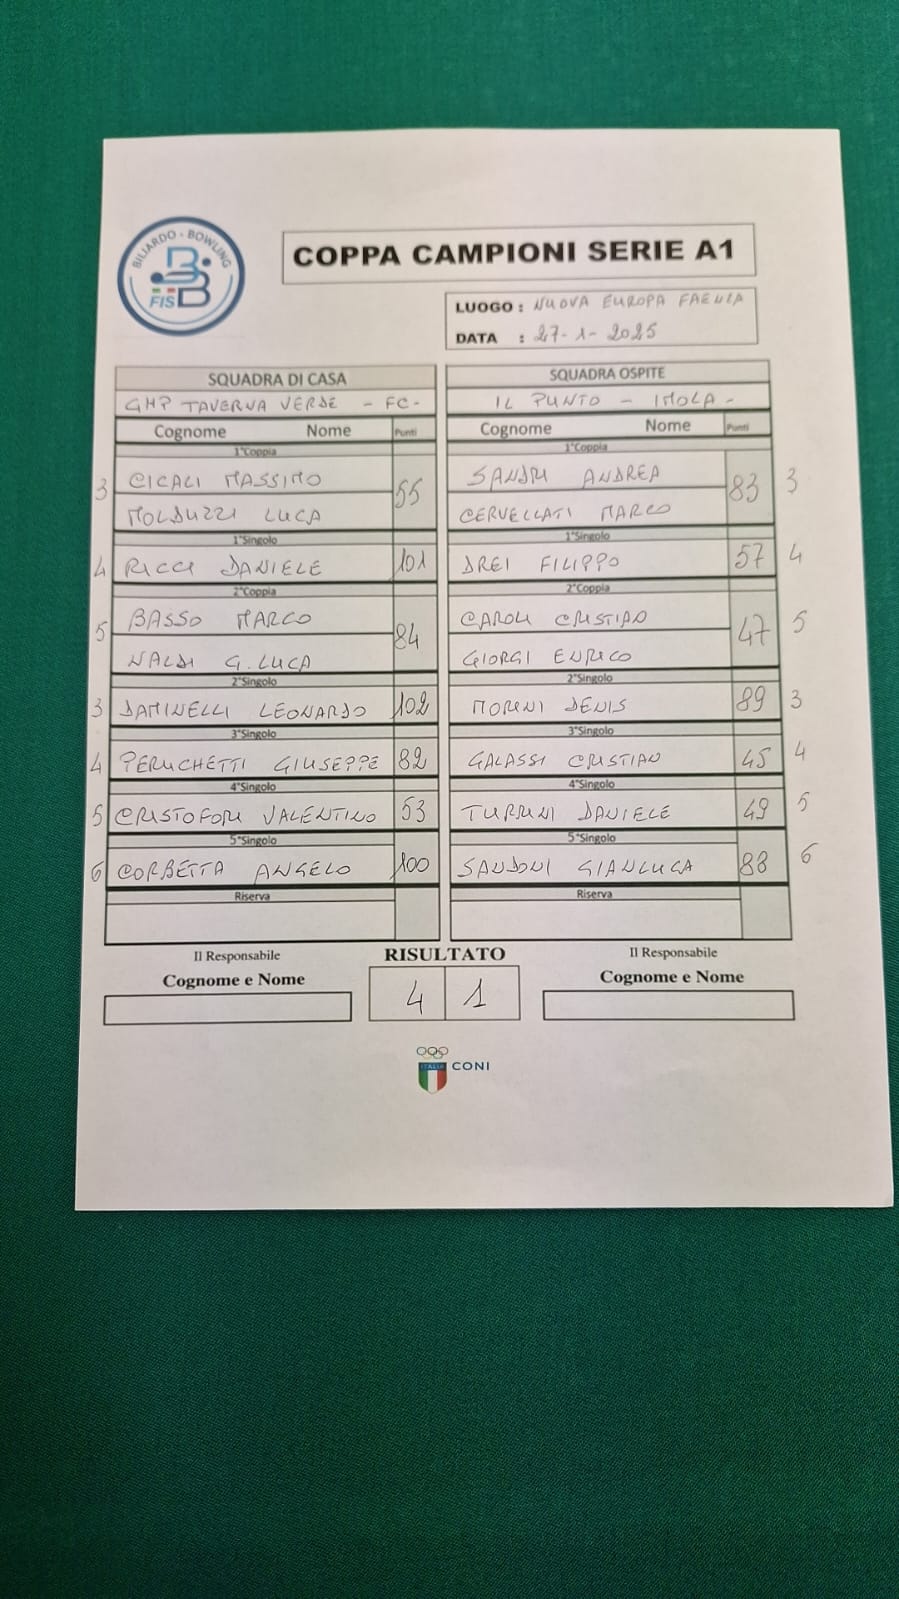 BILIARDO - BOWLING
FISBB
COPPA CAMPIONI SERIE A1
LUOGO : NUOVA EUROPA FAENZA
DATA : 27-1-2025
SQUADRA DI CASA
GHP TAVERNA VERDE - FC -
Cognome Nome Punti
1°Coppia
3 CICALI MASSIMO 55
MOLDUZZI LUCA
1°Singolo
4 RICCI DANIELE 101
2°Coppia
5 BASSO MARCO 84
NALDI G.LUCA
2°Singolo
3 DAMINELLI LEONARDO 102
3°Singolo
4 PERUCHETTI GIUSEPPE 82
4°Singolo
5 CRISTOFORI VALENTINO 53
5°Singolo
6 CORBETTA ANGELO 100
Riserva
SQUADRA OSPITE
IL PUNTO - IMOLA -
Cognome Nome Punti
1°Coppia
SANDRI ANDREA 83 3
CERVELLATI MARCO
1°Singolo
DREI FILIPPO 57 4
2°Coppia
CAROLI CRISTIAN 47 5
GIORGI ENRICO
2°Singolo
MORINI DENIS 89 3
3°Singolo
GALASSI CRISTIAN 45 4
4°Singolo
TURRINI DANIELE 49 5
5°Singolo
SANDONI GIANLUCA 88 6
Riserva
Il Responsabile
Cognome e Nome
RISULTATO
4 1
Il Responsabile
Cognome e Nome
ITALIA CONI